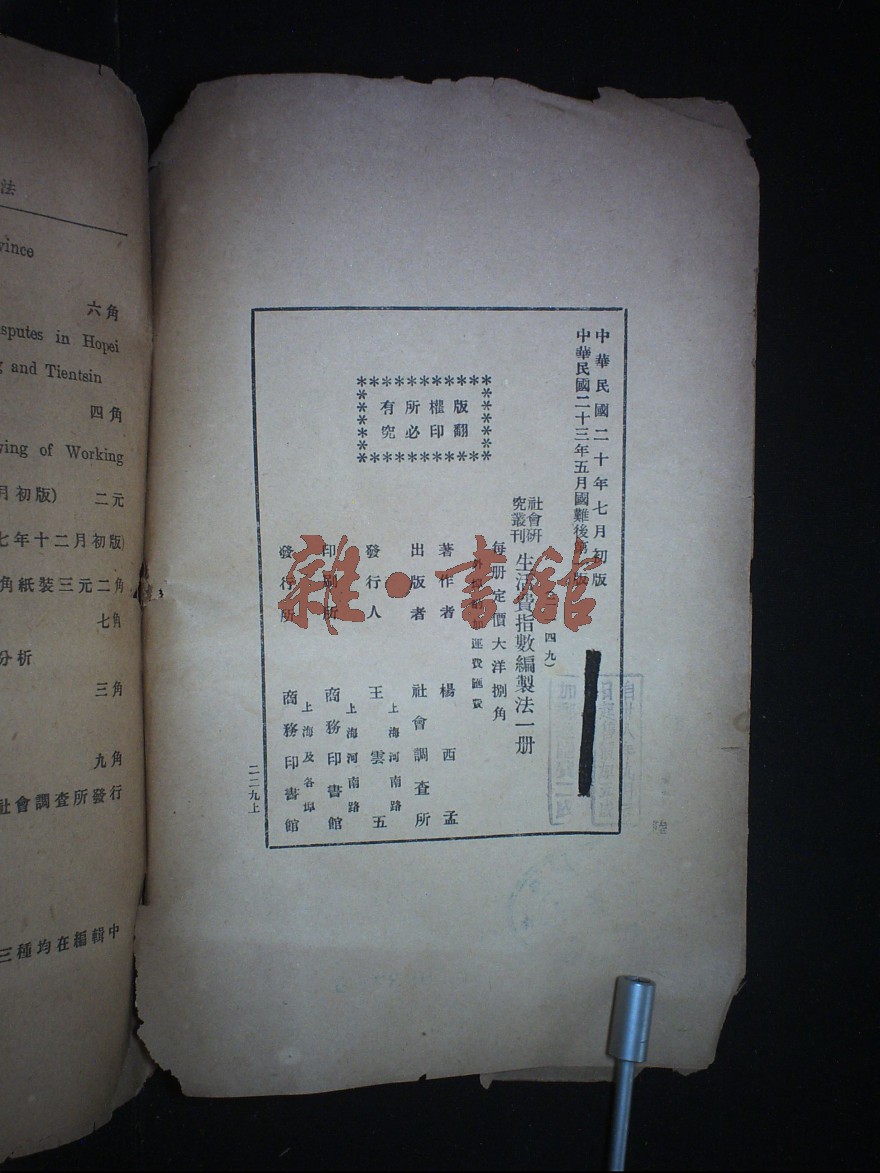 中華民國二十年七月初版
中華民國二十三年五月國難後第一版
四九)
社會研
究叢刊
生活費指數編製法一册
每册定價大洋捌角
外埠酌加運費匯費
版權所有
翻印必究
著作者 楊西孟
出版者 社會調查所
發行人 王雲五
上海河南路
印刷所 商務印書館
上海河南路
發行所 商務印書館
上海及各埠
二二九上
陸
雜·書館
法
vince
六角
sputes in Hopei
g and Tientsin
四角
ving of Working
月初版) 二元
七年十二月初版)
角紙裝三元二角
七角
分析
三角
九角
社會調查所發行
三種均在編輯中